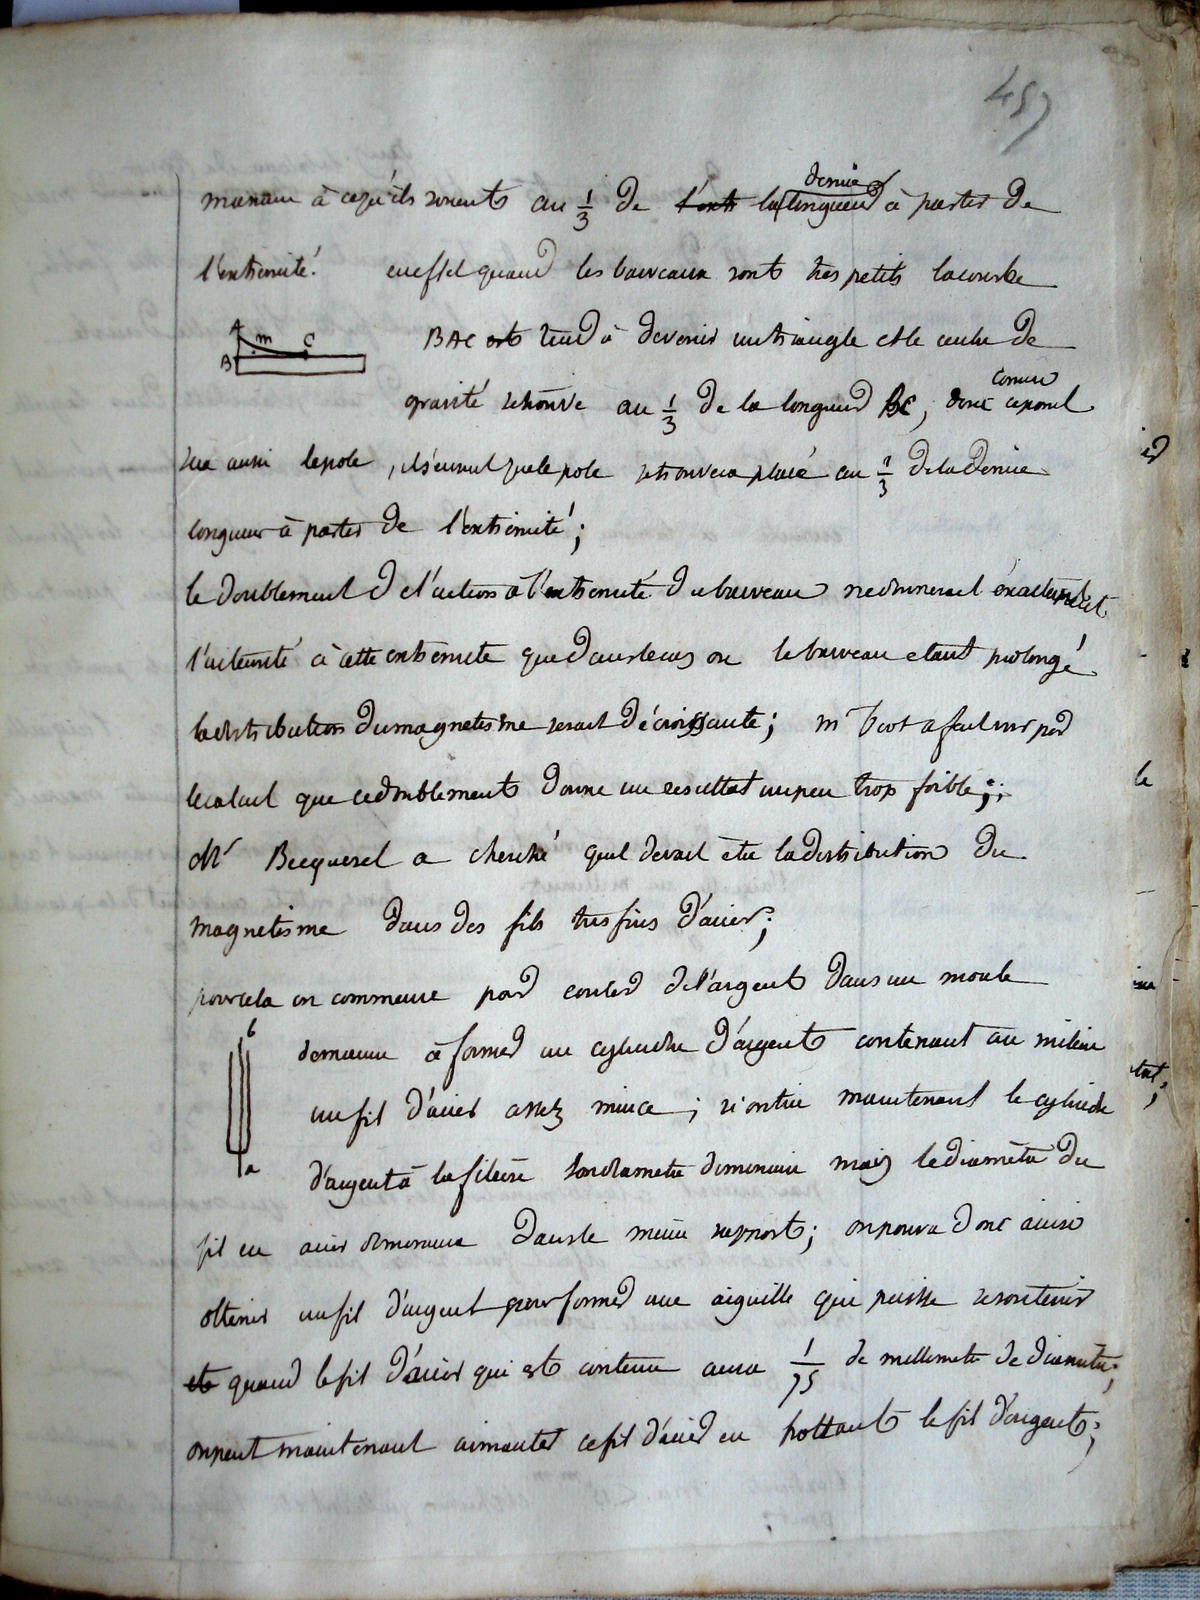 457
maniere à ce qu'ils soient au 1/3 de l'extr la demie longueur à partir de
l'extremité. en effet quand les barreaux sont tres petits la courbe
A m C B
BAC est tend à devenir un triangle et le centre de
gravité se trouve au 1/3 de la longueur BC, donc comme ce point
sera aussi le pole, il s'ensuit que le pole se trouvera placé au 1/3 de la demie
longueur à partir de l'extremité;
le doublement de l'action à l'extremité du barreau ne donnerait éxactement
l'intensité à cette extremite que dans le cas ou le barreau etant prolongé
la distribution du magnetisme serait décroissante; mr biot a fait voir par
le calcul que ce doublement donne un resultat un peu trop foible;
Mr Becquerel a cherché quel devait etre la distribution du
magnetisme dans des fils tres fins d'acier;
pour cela on commence par couler de l'argent dans un moule
b
de maniere à former un cylindre d'argent contenant au milieu
un fil d'acier assez mince; si on tire maintenant le cylindre
a
d'argent à la filière son diametre diminuera mais le diamètre du
fil en acier diminuera dans le même rapport; on pourra donc ainsi
obtenir un fil d'argent pour former une aiguille qui puisse se soutenir
et quand le fil d'acier qui est contenu aura 1/75 de millimetre de diametre;
on peut maintenant aimanter ce fil d'acier en frottant le fil d'argent;
le